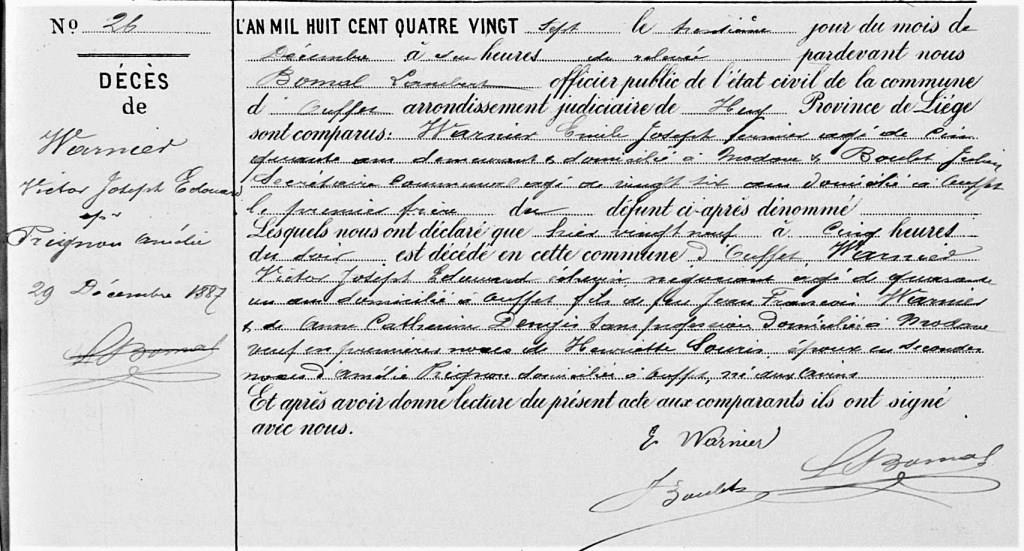 No 26
DÉCÈS
de
Warnier
Victor Joseph Edouard
épx
Prignon Amélie
29 Décembre 1887
LBomal
L'AN MIL HUIT CENT QUATRE VINGT sept le trentième jour du mois de
Décembre à heures de relevée pardevant nous
Bomal Lambert officier public de l'état civil de la commune
d' Ouffet arrondissement judiciaire de Huy Province de Liége
sont comparus: Warnier Emile Joseph fermier agé de cin
quante ans demeurant & domicilié à Modave & Boulet Julien
Secrétaire communal agé de vingt six ans domicilié à Ouffet
le premier frère du défunt ci-après dénommé
Lesquels nous ont déclaré que hier vingt neuf à cinq heures
du soir est décédé en cette commune d'Ouffet, Warnier
Victor Joseph Edouard échevin négociant agé de quarante
un ans domicilié à Ouffet fils de feu Jean François Warnier
& de Anne Catherine sans profession domiciliée à Modave
veuf en premières noces de Henriette Souris époux en secondes
noces d'Amélie Prignon domiciliée à Ouffet, né aux Avins
Et après avoir donné lecture du présent acte aux comparants ils ont signé
avec nous.
E Warnier
LBomal
J Boulet